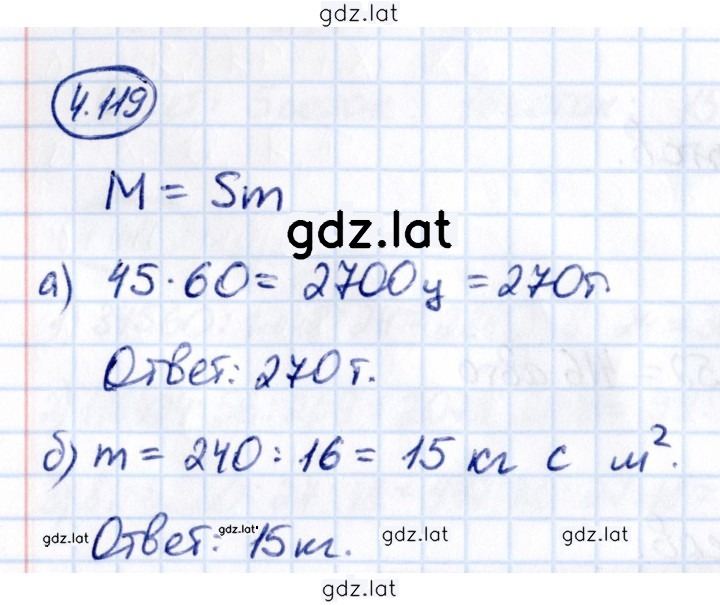 gdz.lat
4.119
M = Sm
gdz.lat
а) 45·60 = 2700ц = 270т.
Ответ: 270т.
б) m = 240 : 16 = 15 кг с м².
Ответ: 15кг.
gdz.lat gdz.lat gdz.lat gdz.lat
gdz.lat